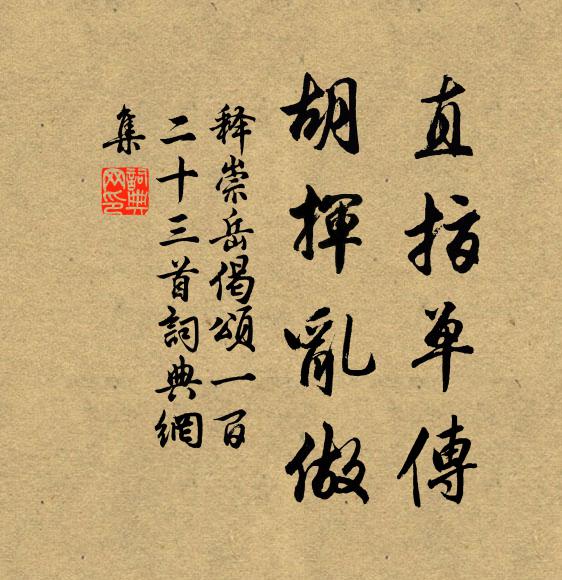 直指单傳
胡揮亂做
释崇岳偈頌一百
二十三首詞典網
集
詞典
网印